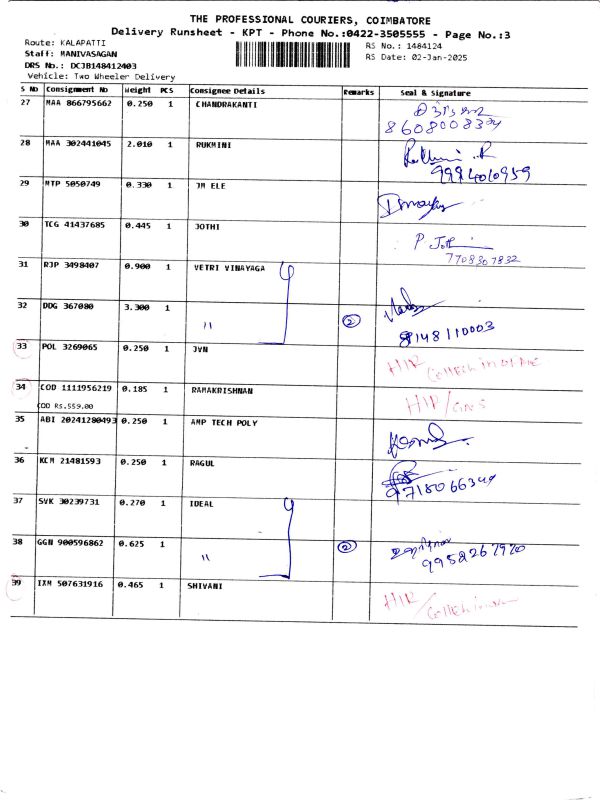 THE PROFESSIONAL COURIERS, COIMBATORE
Delivery Runsheet - KPT - Phone No.:0422-3505555 - Page No.:3
Route: KALAPATTI
RS No.: 1484124
Staff: MANIVASAGAN
RS Date: 02-Jan-2025
DRS No.: DCJB148412403
Vehicle: Two Wheeler Delivery
S No Consignment No Weight PCS Consignee Details Remarks Seal & Signature
27 MAA 866795662 0.250 1 CHANDRAKANTI
28 MAA 302441045 2.010 1 RUKMINI
9994010959
29 MTP 5050749 0.330 1 JM ELE
30 TCG 41437685 0.445 1 JOTHI P Joth
7708307832
31 RJP 3498407 0.900 1 VETRI VINAYAGA
32 DDG 367080 3.300 1 " 2
8148110003
33 POL 3269065 0.250 1 JVN HIR
34 COD 1111956219 0.185 1 RAMAKRISHNAN HIR/
COD RS.559.00
35 ABI 20241280493 0.250 1 AMP TECH POLY
36 KCM 21481593 0.250 1 RAGUL
9718066344
37 SVK 30239731 0.270 1 IDEAL
38 GGN 900596862 0.625 1 " 2
9952267920
39 IXM 507631916 0.465 1 SHIVANI HIR/